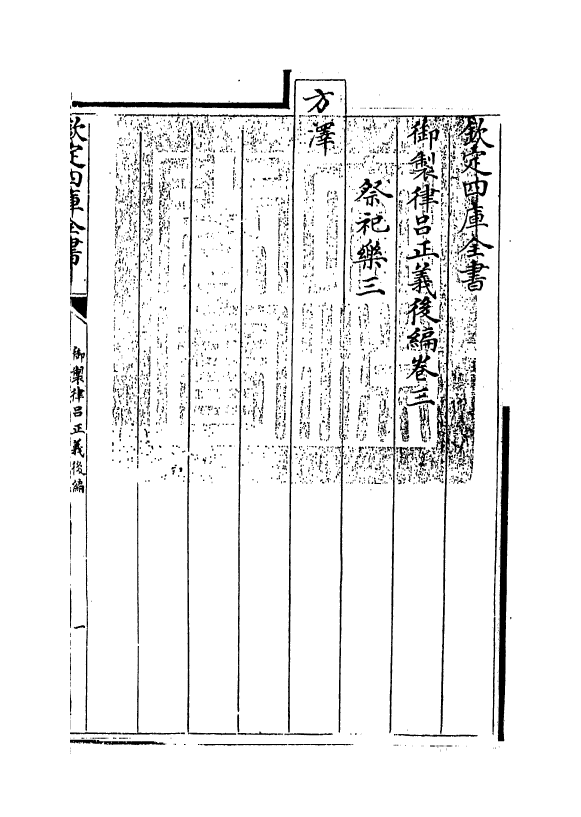 欽定四庫全書
御製律呂正義後編卷三
祭祀樂三
方澤
欽定四庫全書
御製律呂正義後編
一